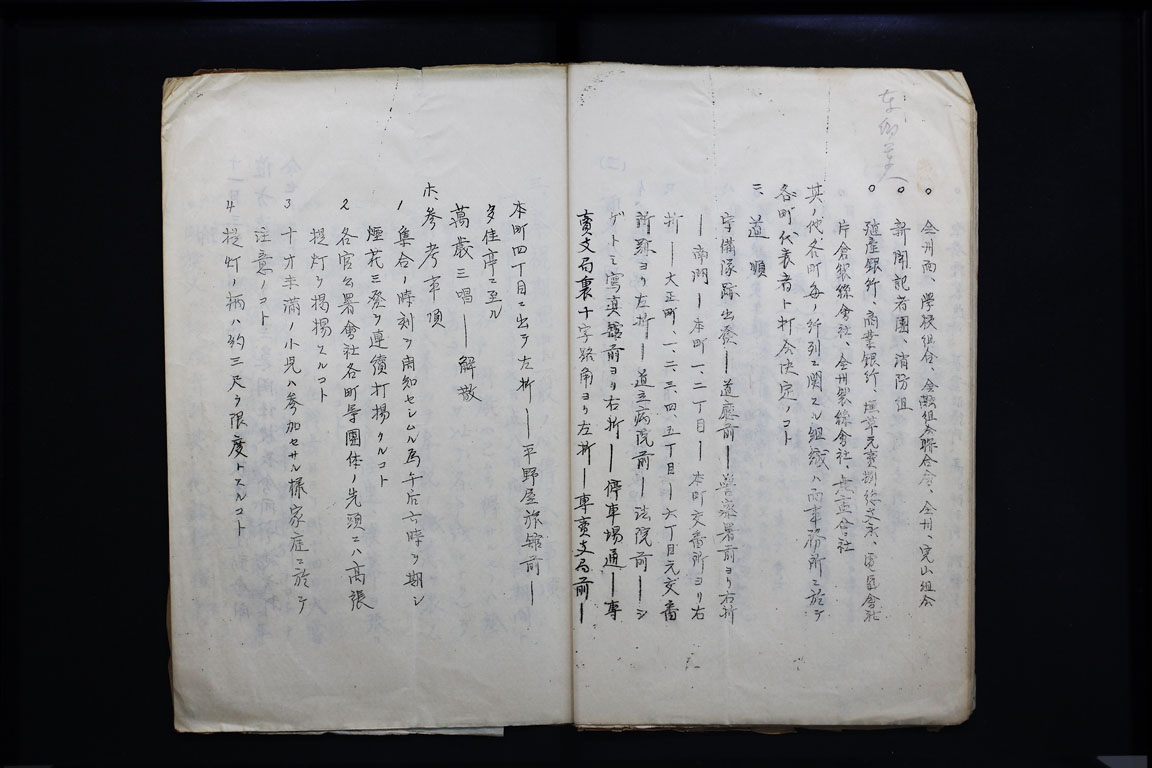 ○ 全州面、學校組合、金融組合聯合會、全州、完山組合
○ 新聞記者團、消防組
○ 殖産銀行、商業銀行、煙草元賣捌総支店、電氣會社
片倉製絲會社、全州製絲會社、無盡會社
其ノ他各町每ノ行列ニ関スル組織ハ面事務所ニ於テ
各町代表者ト打合決定ノコト
二、道順
守備隊跡出發──道廳前──警察署前ヨリ右折
──南門──本町一、二丁目──本町交番所ヨリ右
折──大正町、一、二、三、四、五丁目──六丁目元交番
所跡ヨリ左折──道立病院前──法院前──シ
ゲトミ寫眞舘前ヨリ右折──停車場通──專
賣支局裏十字路角ヨリ左折──專賣支局前──
本町四丁目ニ出テ左折──平野屋旅舘前──
多佳亭ニ至ル
萬歳三唱──解散
ホ、参考事項
1 集合ノ時刻ヲ周知セシムル爲午后六時ヲ期シ
煙花三發ヲ連續打揚クルコト
2 各官公署會社各町等團体ノ先頭ニハ高張
提灯ヲ掲揚スルコト
3 十才未滿ノ小児ハ参加セサル様家庭ニ於テ
注意ノコト
4 提灯ノ柄ハ約三尺ヲ限度トスルコト